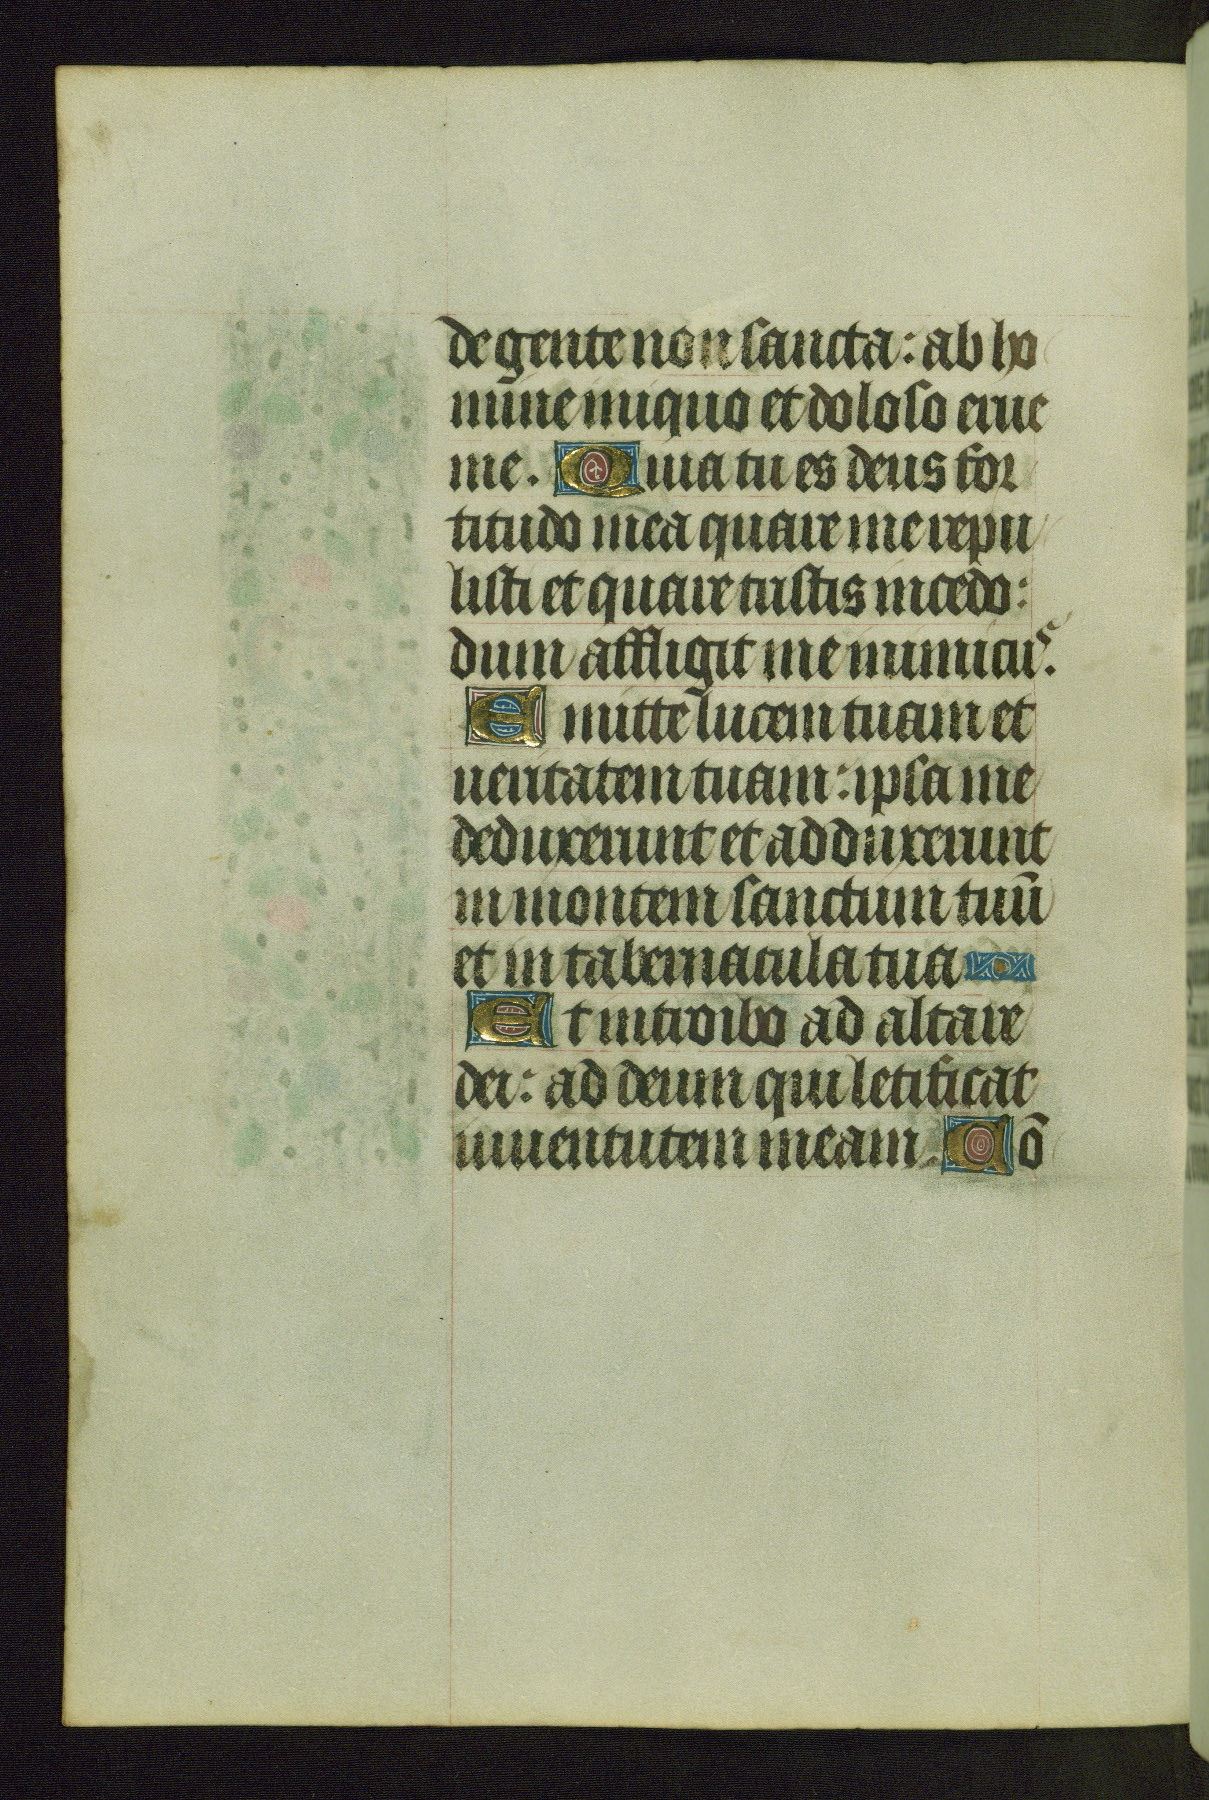 de gente non sancta: ab ho
mine iniquo et doloso erue
me. Quia tu es deus for
titudo mea quare me repu
listi et quare tristis incedo:
dum affligit me inimicus.
Emitte lucem tuam et
ueritatem tuam: ipsa me
deduxerunt et adduxerunt
in montem sanctum tuū
et in tabernacula tua
Et introibo ad altare
dei: ad deum qui letificat
iuuentutem meam. Cō